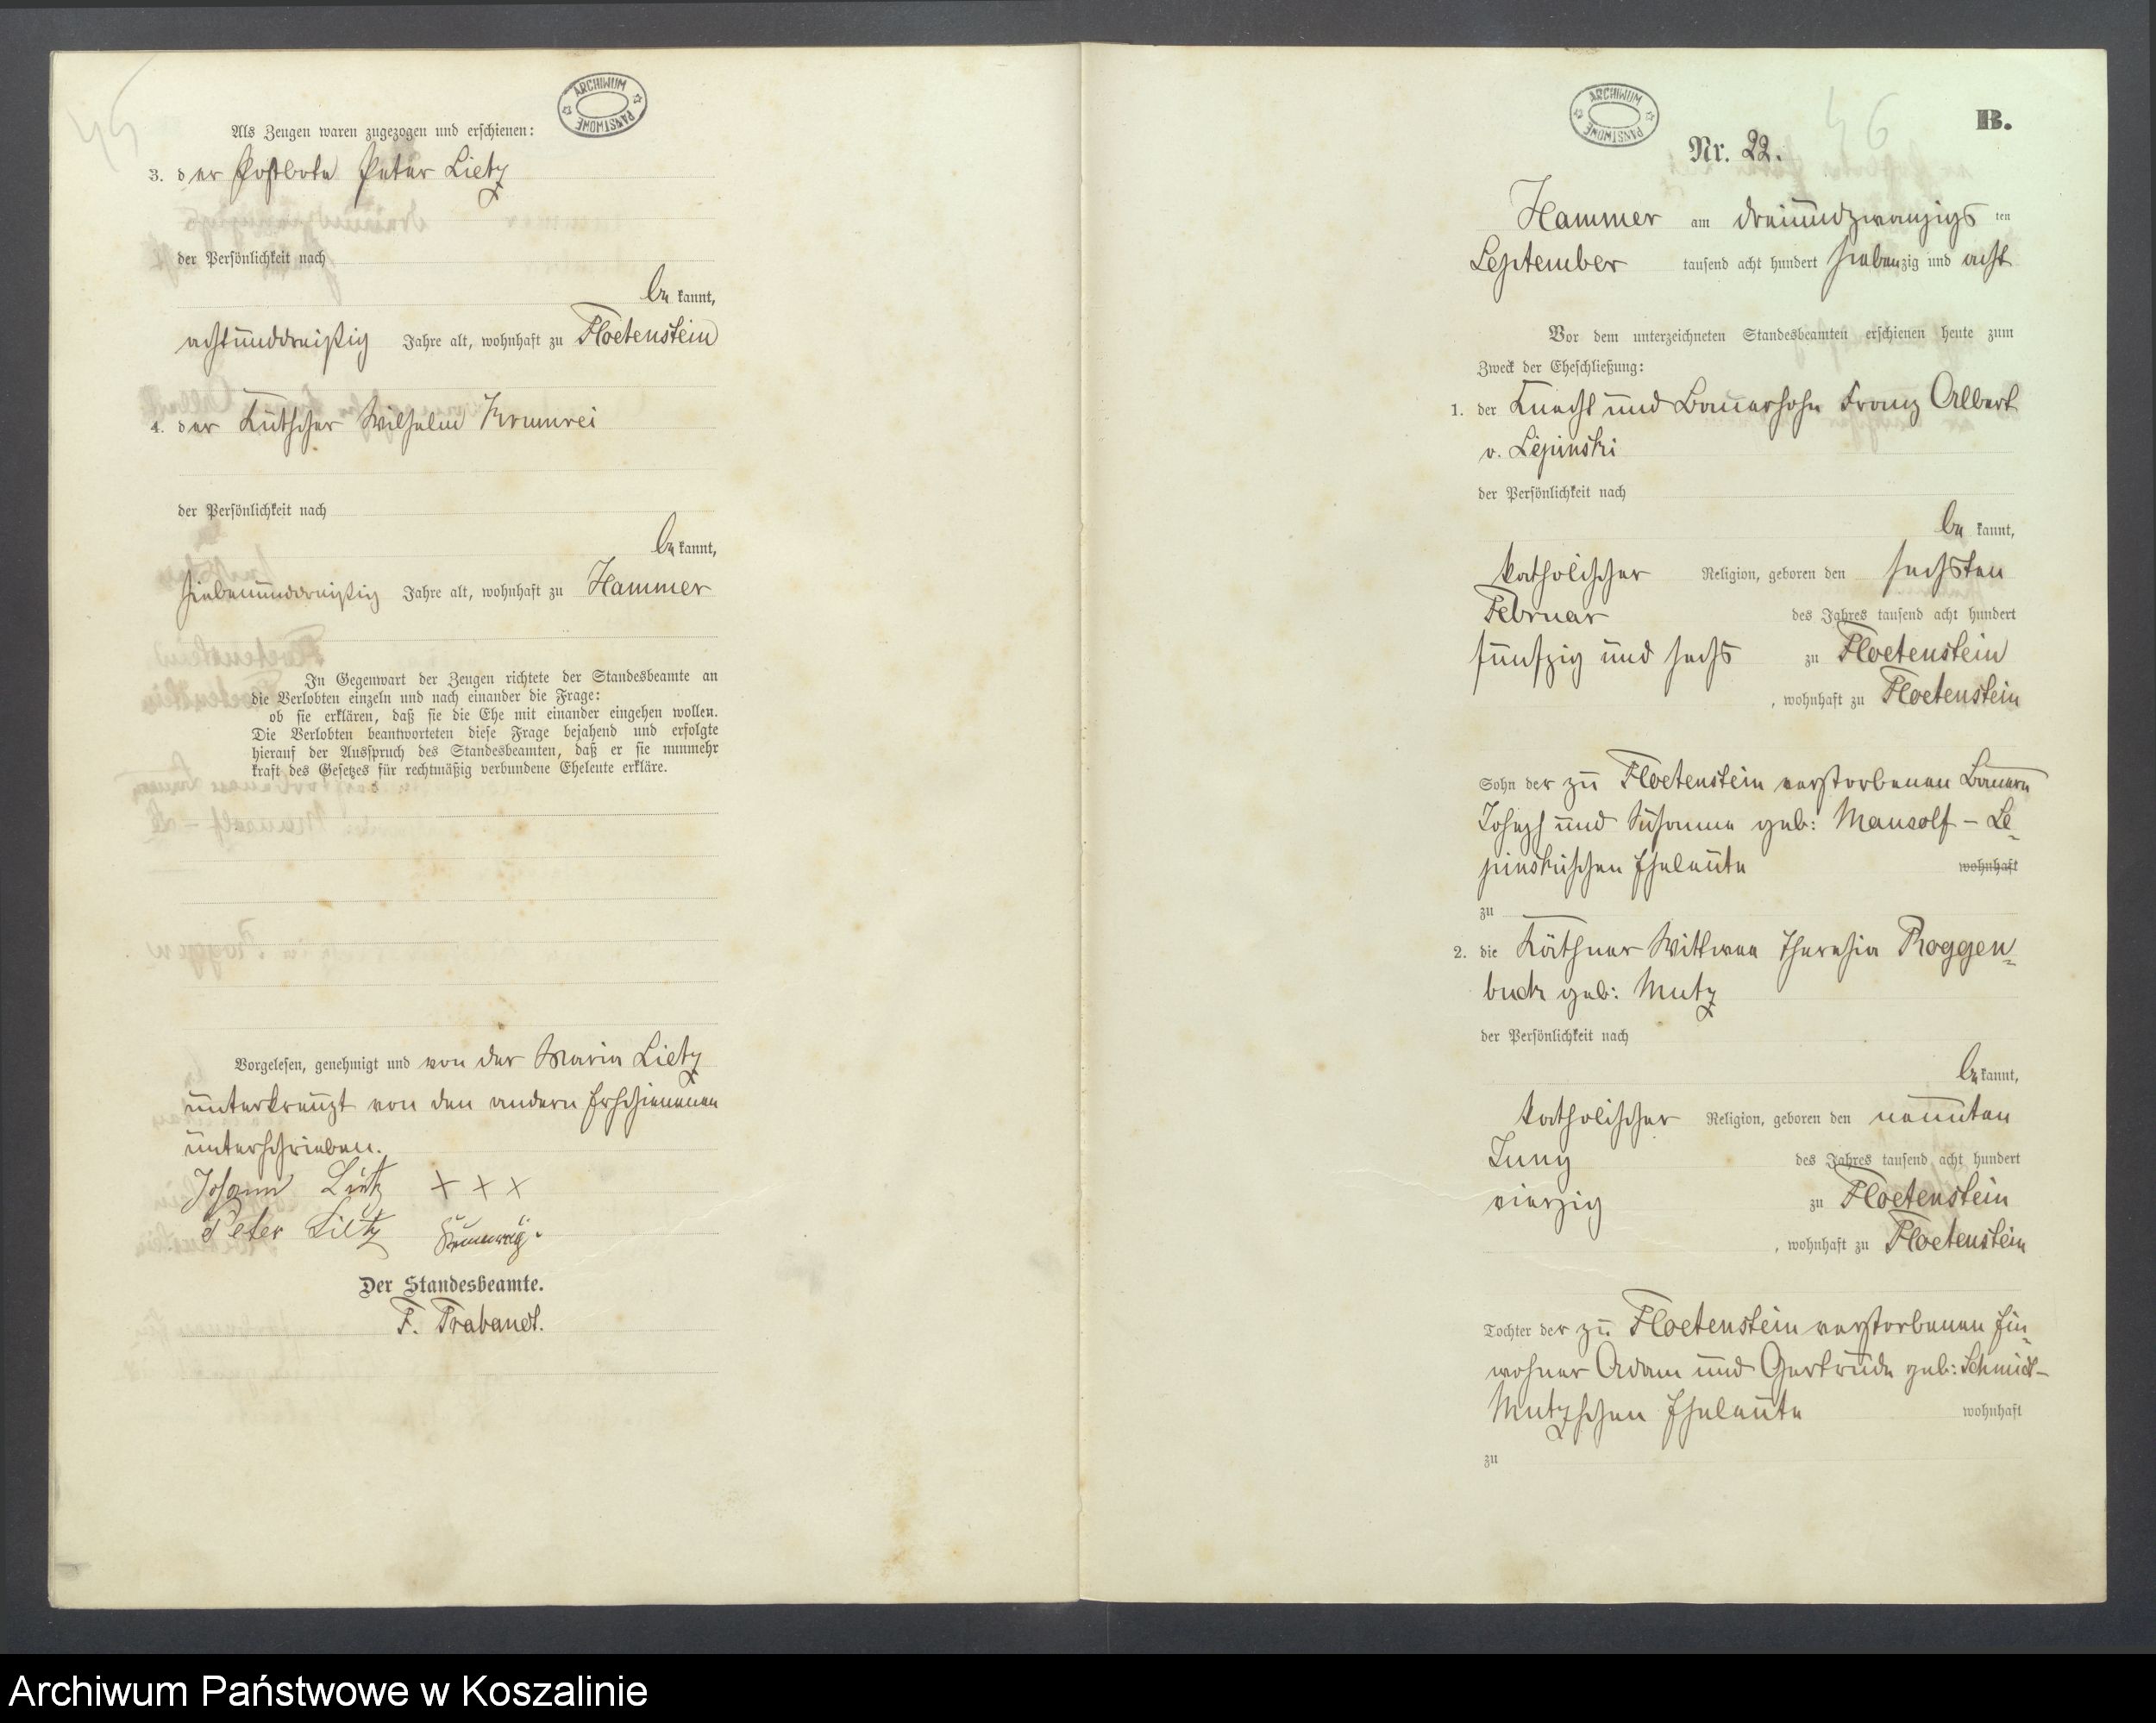 45
ARCHIWUM PAŃSTWOWE
Als Zeugen waren zugezogen und erschienen:
3. der Postbote Peter Lietz
der Persönlichkeit nach
be kannt,
achtunddreißig Jahre alt, wohnhaft zu Floetenstein
4. der Kutscher Wilhelm Krumrei
der Persönlichkeit nach
be kannt,
siebenunddreißig Jahre alt, wohnhaft zu Hammer
In Gegenwart der Zeugen richtete der Standesbeamte an
die Verlobten einzeln und nach einander die Frage:
ob sie erklären, daß sie die Ehe mit einander eingehen wollen.
Die Verlobten beantworteten diese Frage bejahend und erfolgte
hierauf der Ausspruch des Standesbeamten, daß er sie nunmehr
kraft des Gesetzes für rechtmäßig verbundene Eheleute erkläre.
Vorgelesen, genehmigt und von der Maria Lietz
unterkreuzt von den andern Erschienenen
unterschrieben.
Johann Lietz + + +
Peter Lietz
Der Standesbeamte.
F. Trabandt.
ARCHIWUM PAŃSTWOWE
46
B.
Nr. 22.
Hammer am dreiundzwanzigs ten
September tausend acht hundert siebenzig und acht
Vor dem unterzeichneten Standesbeamten erschienen heute zum
Zweck der Eheschließung:
1. der Knecht und Bauersohn Franz Albert
v. Lepinski
der Persönlichkeit nach
be kannt,
katholischer Religion, geboren den sechsten
Februar des Jahres tausend acht hundert
funfzig und sechs zu Floetenstein
, wohnhaft zu Floetenstein
Sohn der zu Floetenstein verstorbenen Bauern
Joseph und Susanna geb: Mausolf – Le-
pinskischen Eheleute wohnhaft
zu
2. die Käthner Wittwee Theresia Roggen-
buck geb: Mutz
der Persönlichkeit nach
be kannt,
katholischer Religion, geboren den neunten
Juny des Jahres tausend acht hundert
vierzig zu Floetenstein
, wohnhaft zu Floetenstein
Tochter der zu Floetenstein verstorbenen Ein-
wohner Adam und Gertrude geb: Schmidt–
Mutzschen Eheleute wohnhaft
zu
Archiwum Państwowe w Koszalinie